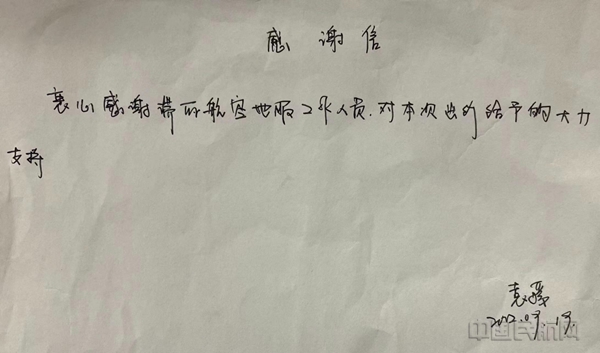 感谢信
衷心感谢航空地服工作人员.对本次出行给予的大力
支持
袁
中国民航网